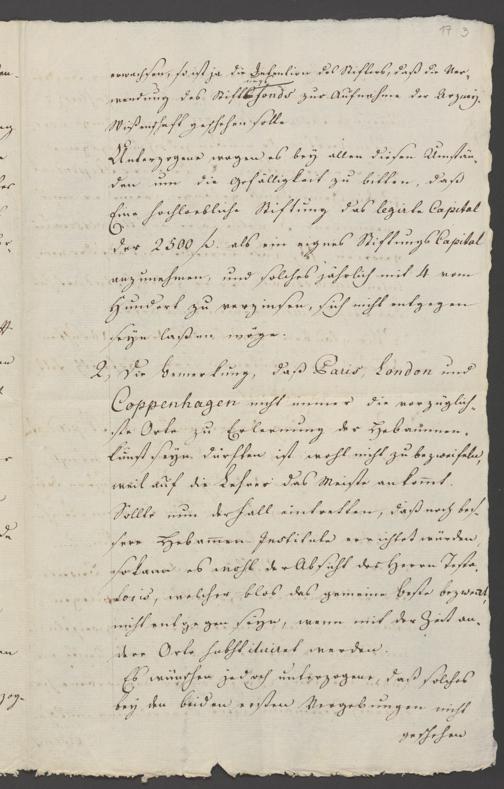 17 3
erwachsen, so ist ja die Intention des Stifters, daß die Ver-
wendung des Stifts Fonds zur Aufnahme der Arzney-
Wißenschaft geschehen solle
Unterzogene wagen es bey allen diesen Umstän-
den um die Gefälligkeit zu bitten, daß
Eine hochloebliche Stiftung das legirte Capital
der 2500 f. als ein eignes Stiftungs Capital
anzunehmen, und solches jährlich mit 4 vom
Hundert zu verzinsen, sich nicht entgegen
seyn laßen möge.
2, Die Bemerkung, daß Paris, London und
Coppenhagen nicht immer die vorzüglich-
ste Orte zu Erlernung der Hebammen-
kunst seyn dürften ist wohl nicht zu bezweifeln,
weil auf die Lehrer das Meiste ankomt.
Sollte nun der Fall eintretten, daß noch beß-
sere Hebammen Institute errichtet würden
so kann es wohl der Absicht des Herrn Testa-
toris, welcher blos das gemeine Beste bezweckt,
nicht entgegen seyn, wenn mit der Zeit an-
dere Orte substituiret werden.
Es wünschen jedoch unterzogene, daß solches
bey den beiden ersten Vergebungen nicht
geschehen